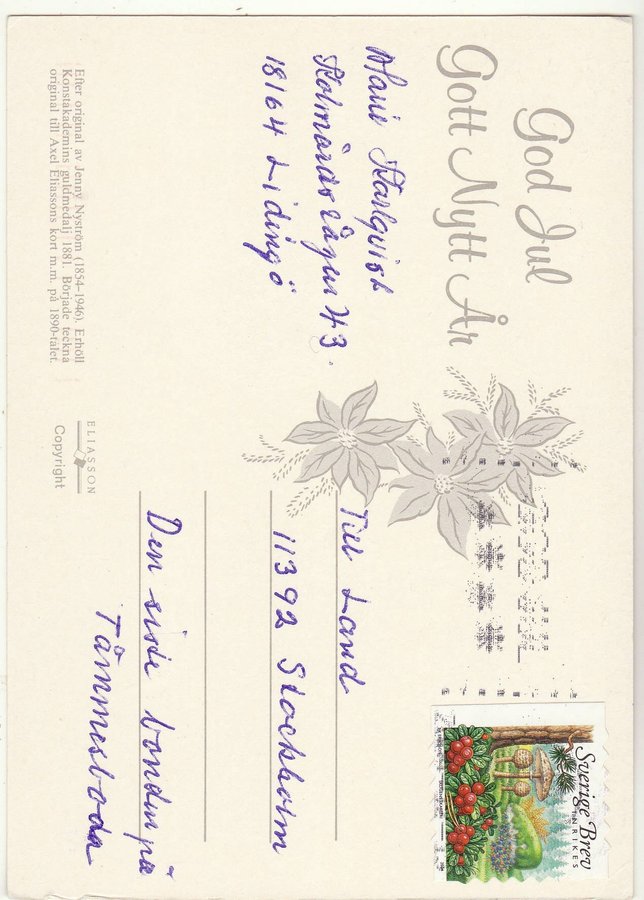 God Jul
Gott Nytt År
Kolmårdsvägen 43.
18164 Lidingö
Efter original av Jenny Nyström (1854–1946). Erhöll
Konstakademins guldmedalj 1881. Började teckna
original till Axel Eliassons kort m.m. på 1890-talet.
ELIASSON
Copyright
Till Land
11392 Stockholm
Den siste bonden på
Tämmesboda
Sverige Brev
INRIKES